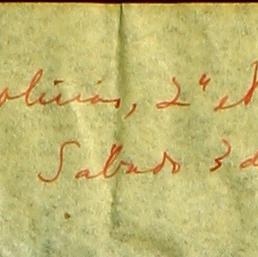 olicias, 2ª e
Sabado 3 d